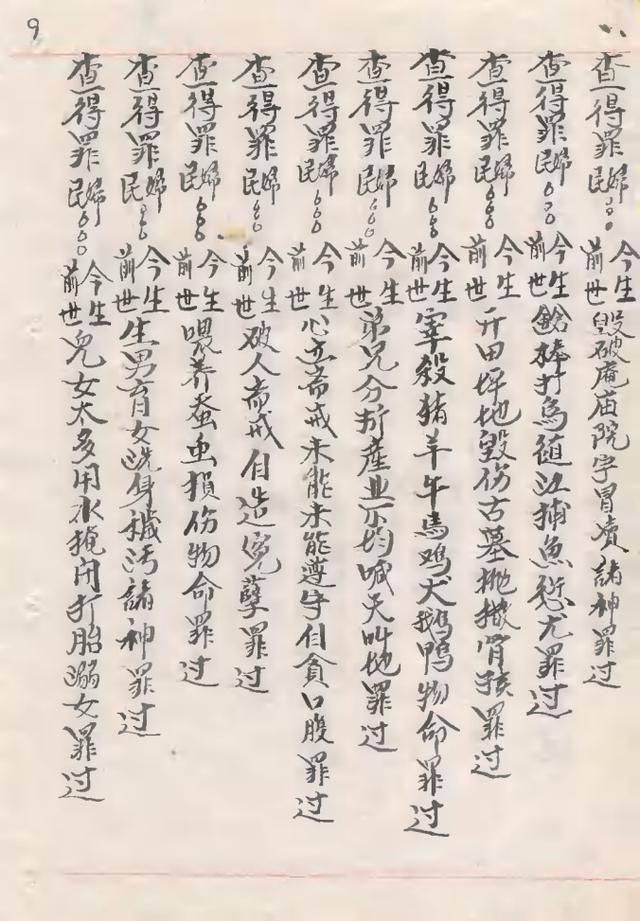 9
查得罪民婦○○○今生前世毀破庵庙院字冒瀆諸神罪过
查得罪民婦○○○今生前世鎗棒打鳥江捕魚愆尤罪过
查得罪民婦○○○今生前世开田坪地毀伤古墓抛撒骨骸罪过
查得罪民婦○○○今生前世宰殺猪羊牛馬鸡犬鵝鴨物命罪过
查得罪民婦○○○今生前世弟兄分折產业不均喊天叫地罪过
查得罪民婦○○○今生前世心亦斋戒未能未能遵守自貪口腹罪过
查得罪民婦○○今生前世破人斋戒自造冤孽罪过
查得罪民婦○○○今生前世喂养蚕虫損伤物命罪过
查得罪民婦○○○今生前世生男育女洗身穢污諸神罪过
查得罪民婦○○○今生前世兒女太多用水掩闭打胎溺女罪过